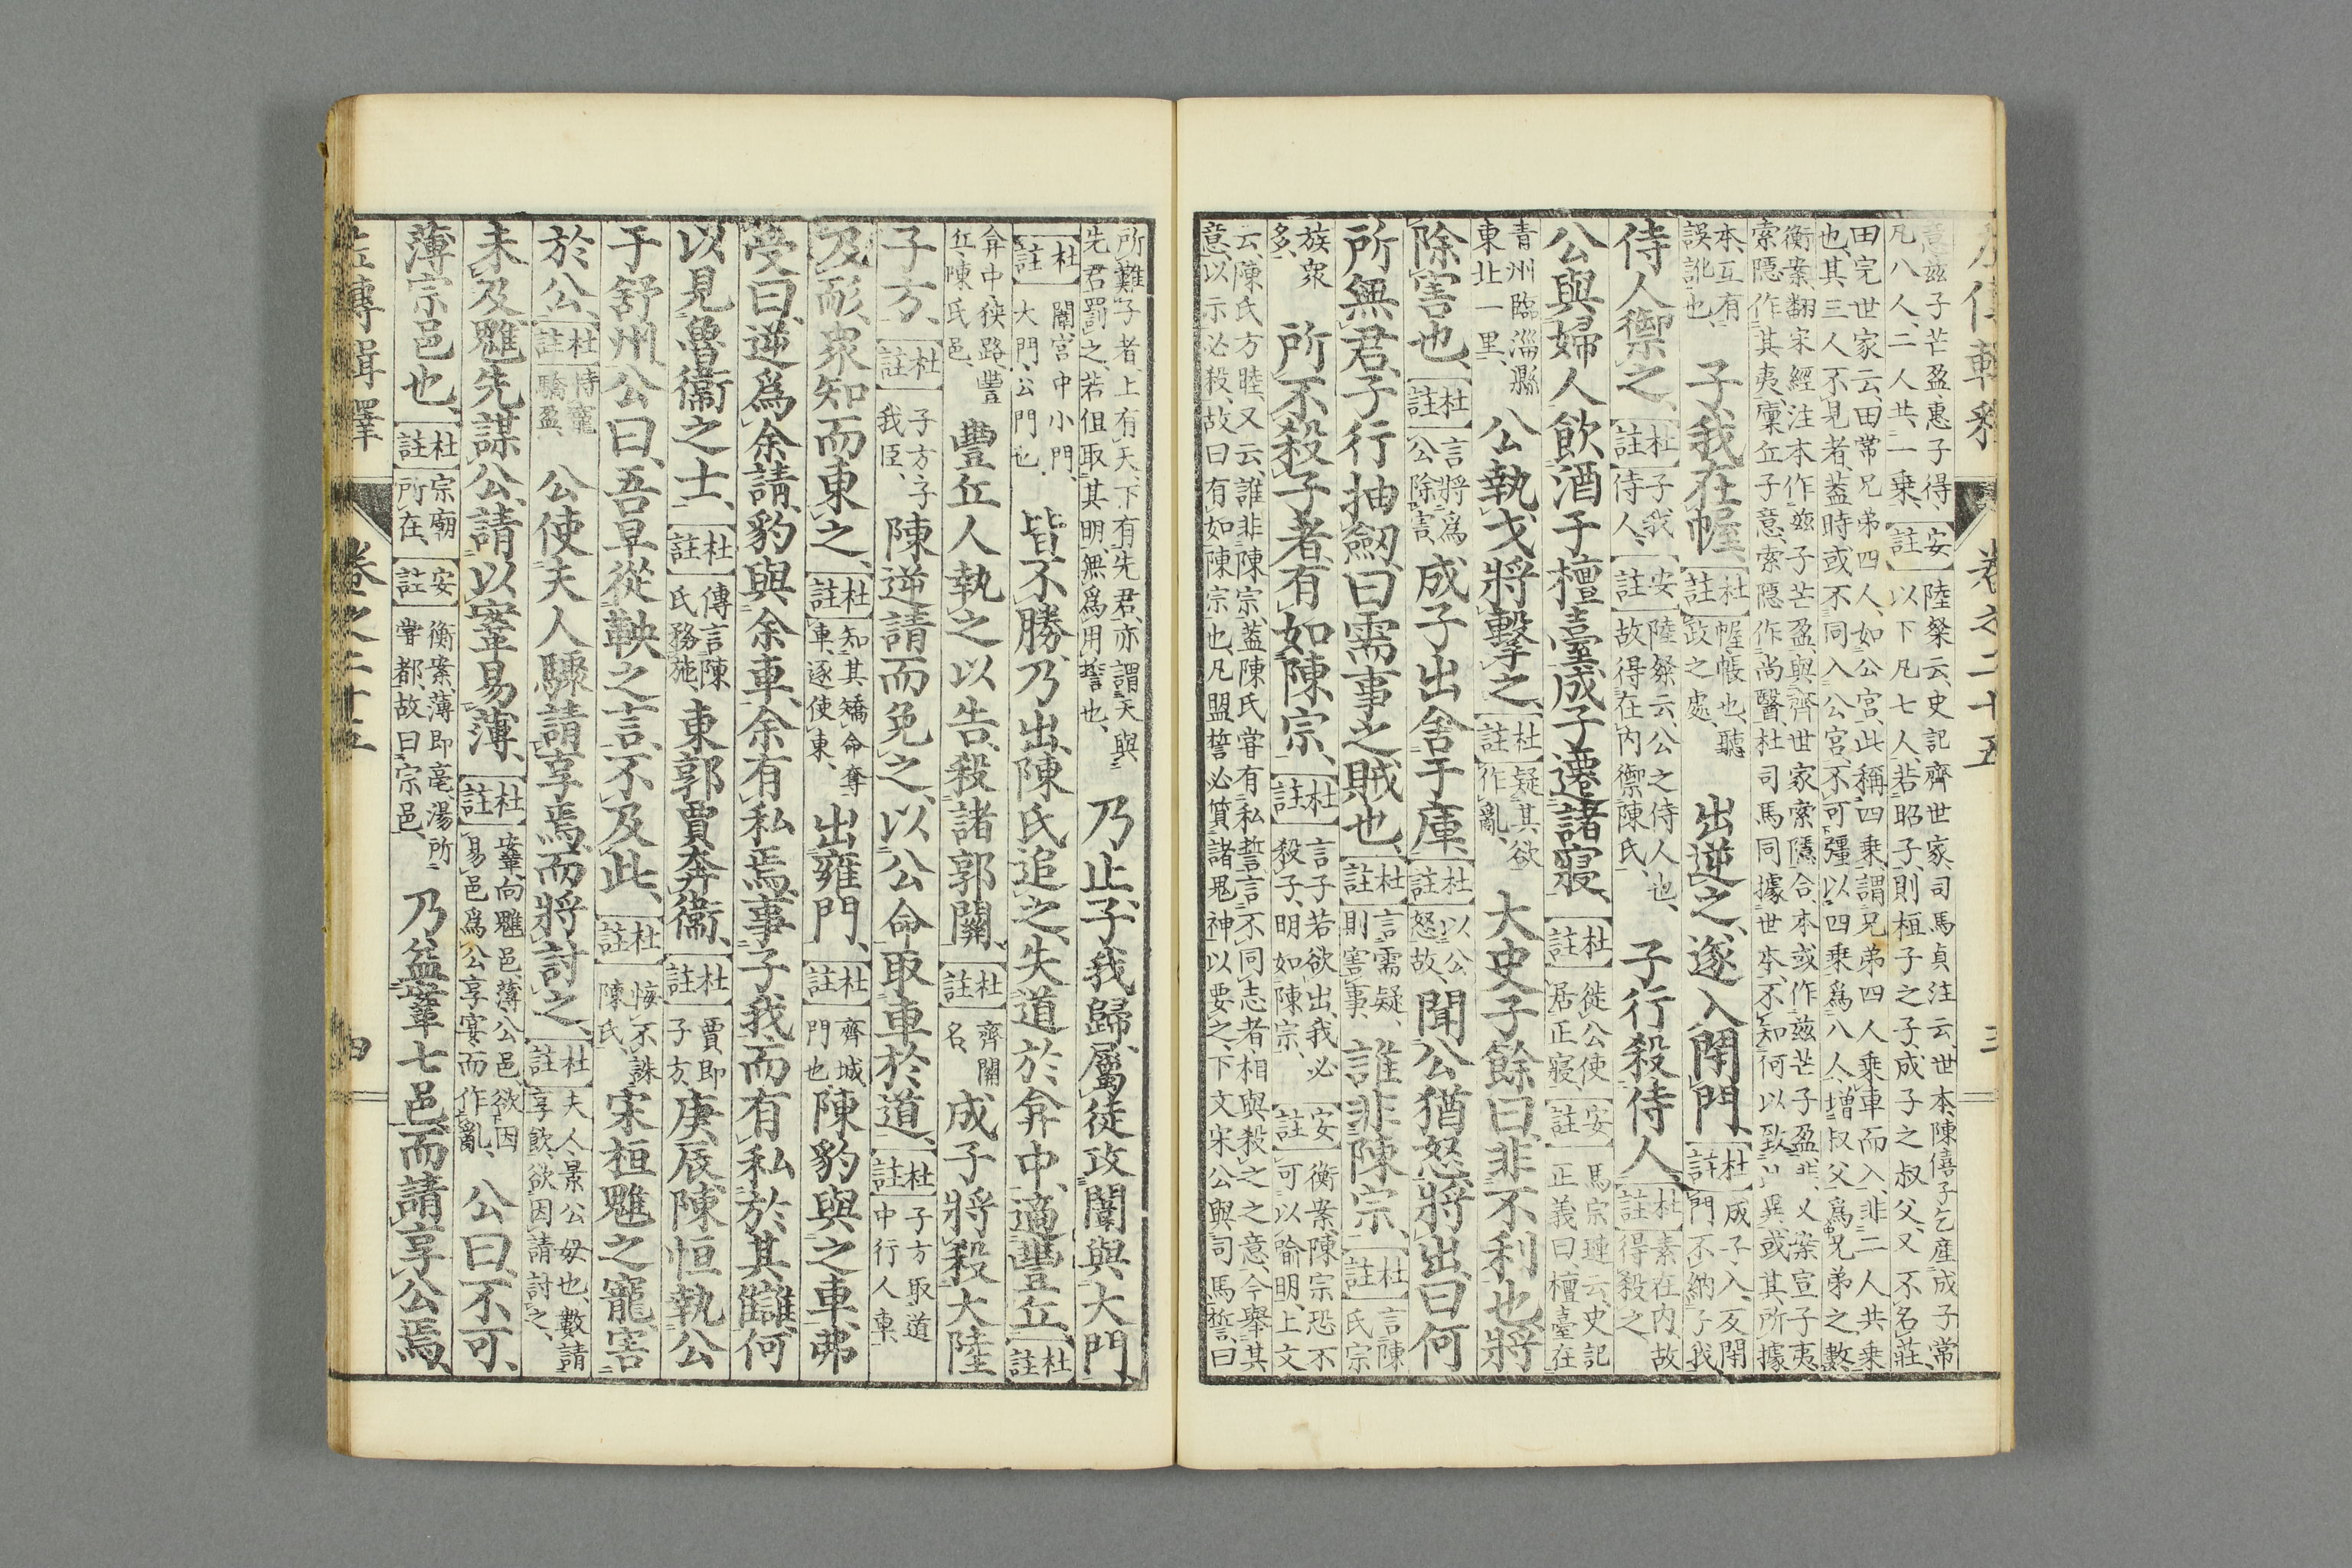 左傳輯釋 卷之二十五 三
意茲子芒盈惠子得
凡八人二人共一乘安註陸粲云史記齊世家司馬貞注云世本陳僖子乞產成子常
以下凡七人若昭子則桓子之子成子之叔父又不名莊
田完世家云田常兄弟四人如公宮此稱四乘謂兄弟四人乘車而入非二人共乘
也其三人不見者蓋時或不同入公宮不可彊以四乘爲八人增叔父爲兄弟之數
衡案翻宋經注本作茲子芒盈與齊世家索隱合本或作茲芒子盈非又案宣子夷
索隱作其夷廩丘子意索隱作尚醫杜司馬同據世本不知何以致異或其所據
本互有
誤訛也子我在幄杜註幄帳也聽
政之處出逆之遂入閉門杜註成子入反閉
門不納子我
侍人禦之杜註子我
侍人安註陸粲云公之侍人也
故得在內禦陳氏子行殺侍人杜註素在內故
得殺之
公與婦人飲酒于檀臺成子遷諸寢杜註徙公使
居正寢安註馬宗璉云史記
正義曰檀臺在
青州臨淄縣
東北一里公執戈將擊之杜註疑其欲
作亂大史子餘曰非不利也將
除害也杜註言將爲
公除害成子出舍于庫杜註以公
怒故聞公猶怒將出曰何
所無君子行抽劒曰需事之賊也杜註言需疑
則害事誰非陳宗杜註言陳
氏宗
族衆
多所不殺子者有如陳宗杜註言子若欲出我必
殺子明如陳宗安註衡案陳宗恐不
可以喻明上文
云陳氏方睦又云誰非陳宗蓋陳氏嘗有私誓言不同志者相與殺之之意今舉其
意以示必殺故曰有如陳宗也凡盟誓必質諸鬼神以要之下文宋公與司馬誓曰
所難子者上有天下有先君亦謂天與
先君罰之若但取其明無爲用誓也乃止子我歸屬徒攻闈與大門
杜註闈宮中小門
大門公門也皆不勝乃出陳氏追之失道於弇中適豐丘杜註
弇中狹路豐
丘陳氏邑豐丘人執之以告殺諸郭關杜註齊關
名成子將殺大陸
子方杜註子方子
我臣陳逆請而免之以公命取車於道杜註子方取道
中行人車
及耏衆知而東之杜註知其矯命奪
車逐使東出雍門杜註齊城
門也陳豹與之車弗
受曰逆爲余請豹與余車余有私焉事子我而有私於其讎何
以見魯衞之士杜註傳言陳
氏務施東郭賈奔衞杜註賈即
子方庚辰陳恒執公
于舒州公曰吾早從鞅之言不及此杜註悔不誅
陳氏宋桓魋之寵害
於公杜註恃寵
驕盈公使夫人驟請享焉而將討之杜註夫人景公母也數請
享飲欲因請討之
未及魋先謀公請以鞌易薄杜註鞌向魋邑薄公邑欲因
易邑爲公享宴而作亂公曰不可
薄宗邑也杜註宗廟
所在安註衡案薄即亳湯所
嘗都故曰宗邑乃益鞌七邑而請享公焉
左傳輯釋 卷之二十五 四